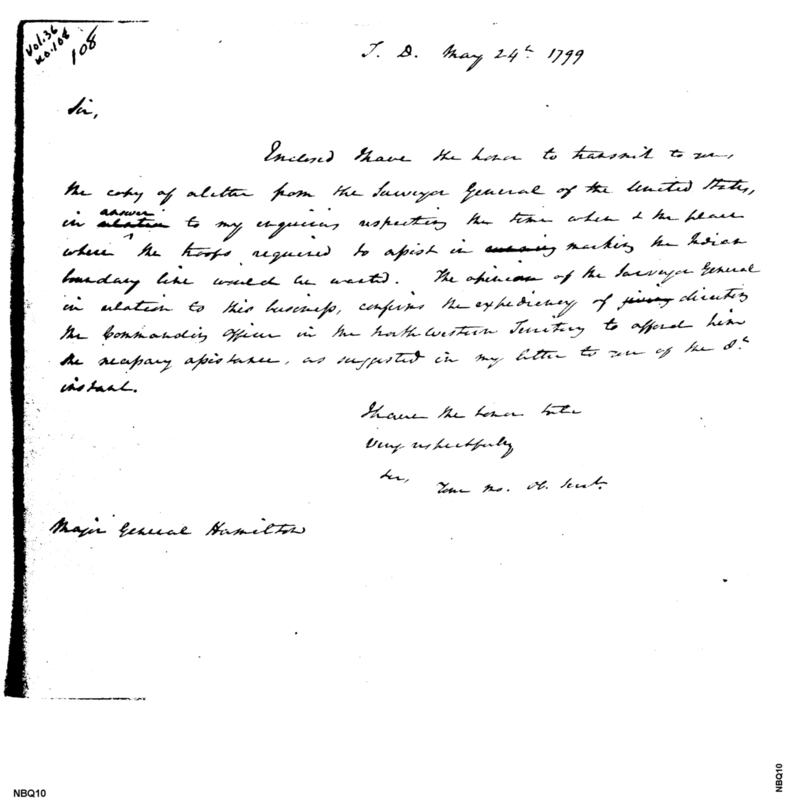 Vol. 36
no. 108
108
T. D. May 24th. 1799
Sir,
Enclosed I have the honor to transmit to you,
the copy of a letter from the Surveyor General of the United States,
answer
in relation to my enquiries respecting the time when & the place
where the troops required to assist in running marking the Indian
boundary line would be wanted. The opinion of the Surveyor General
in relation to this business, confirms the expediency of giving directing
the Commanding Officer in the North Western Territory to afford him
the necessary assistance, as suggested in my letter to you of the 8th
instant.
I have the honor to be
Very respectfully
Sir,
Your mo. ob. Servt.
Major General Hamilton
NBQ10
NBQ10